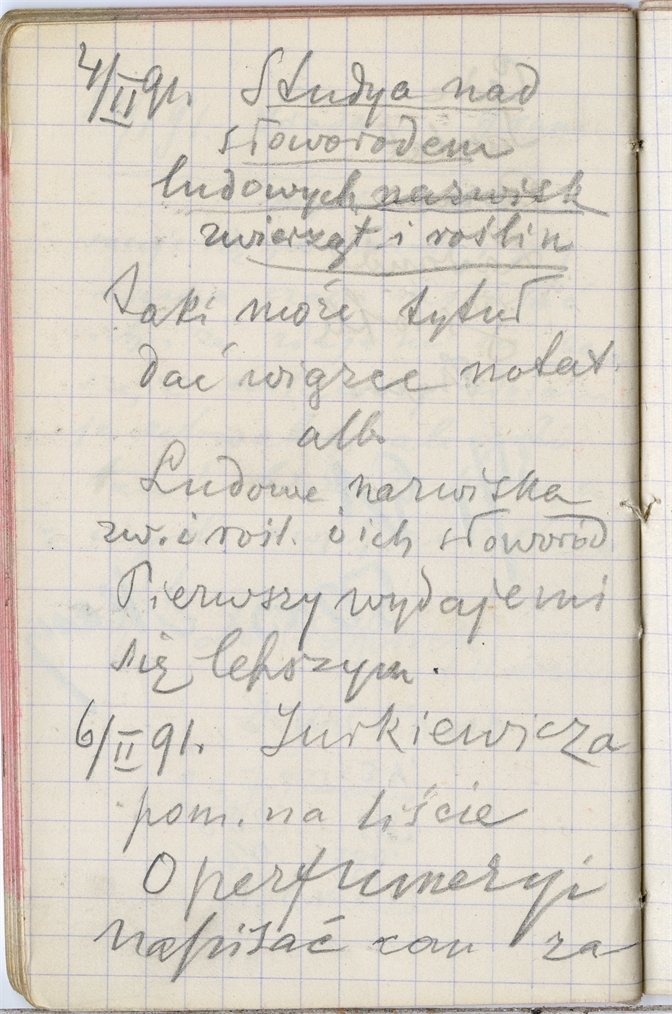 4/II 91. Studya nad
słoworodem
ludowych nazwisk
zwierząt i roślin
Taki może tytuł
dać wiązce notat
alb.
Ludowe nazwiska
zw. i rośl. i ich słoworód
Pierwszy wydaje mi
się lepszym.
6/II 91. Jurkiewicza
pom. na liście
O perfumeryi
napisać za